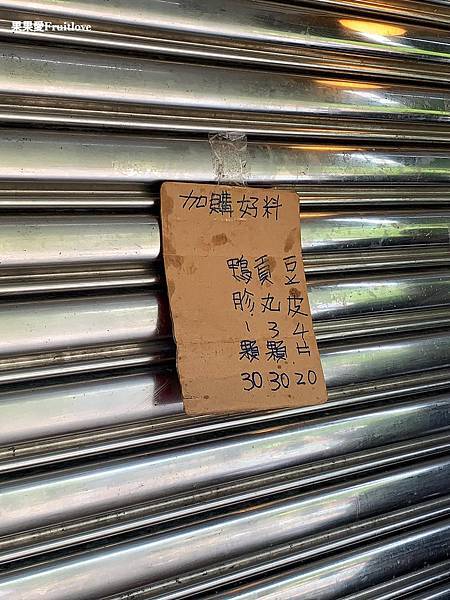 果果愛Fruitlove
加購好料
豆皮4片20
貢丸3顆30
鴨胗1顆30